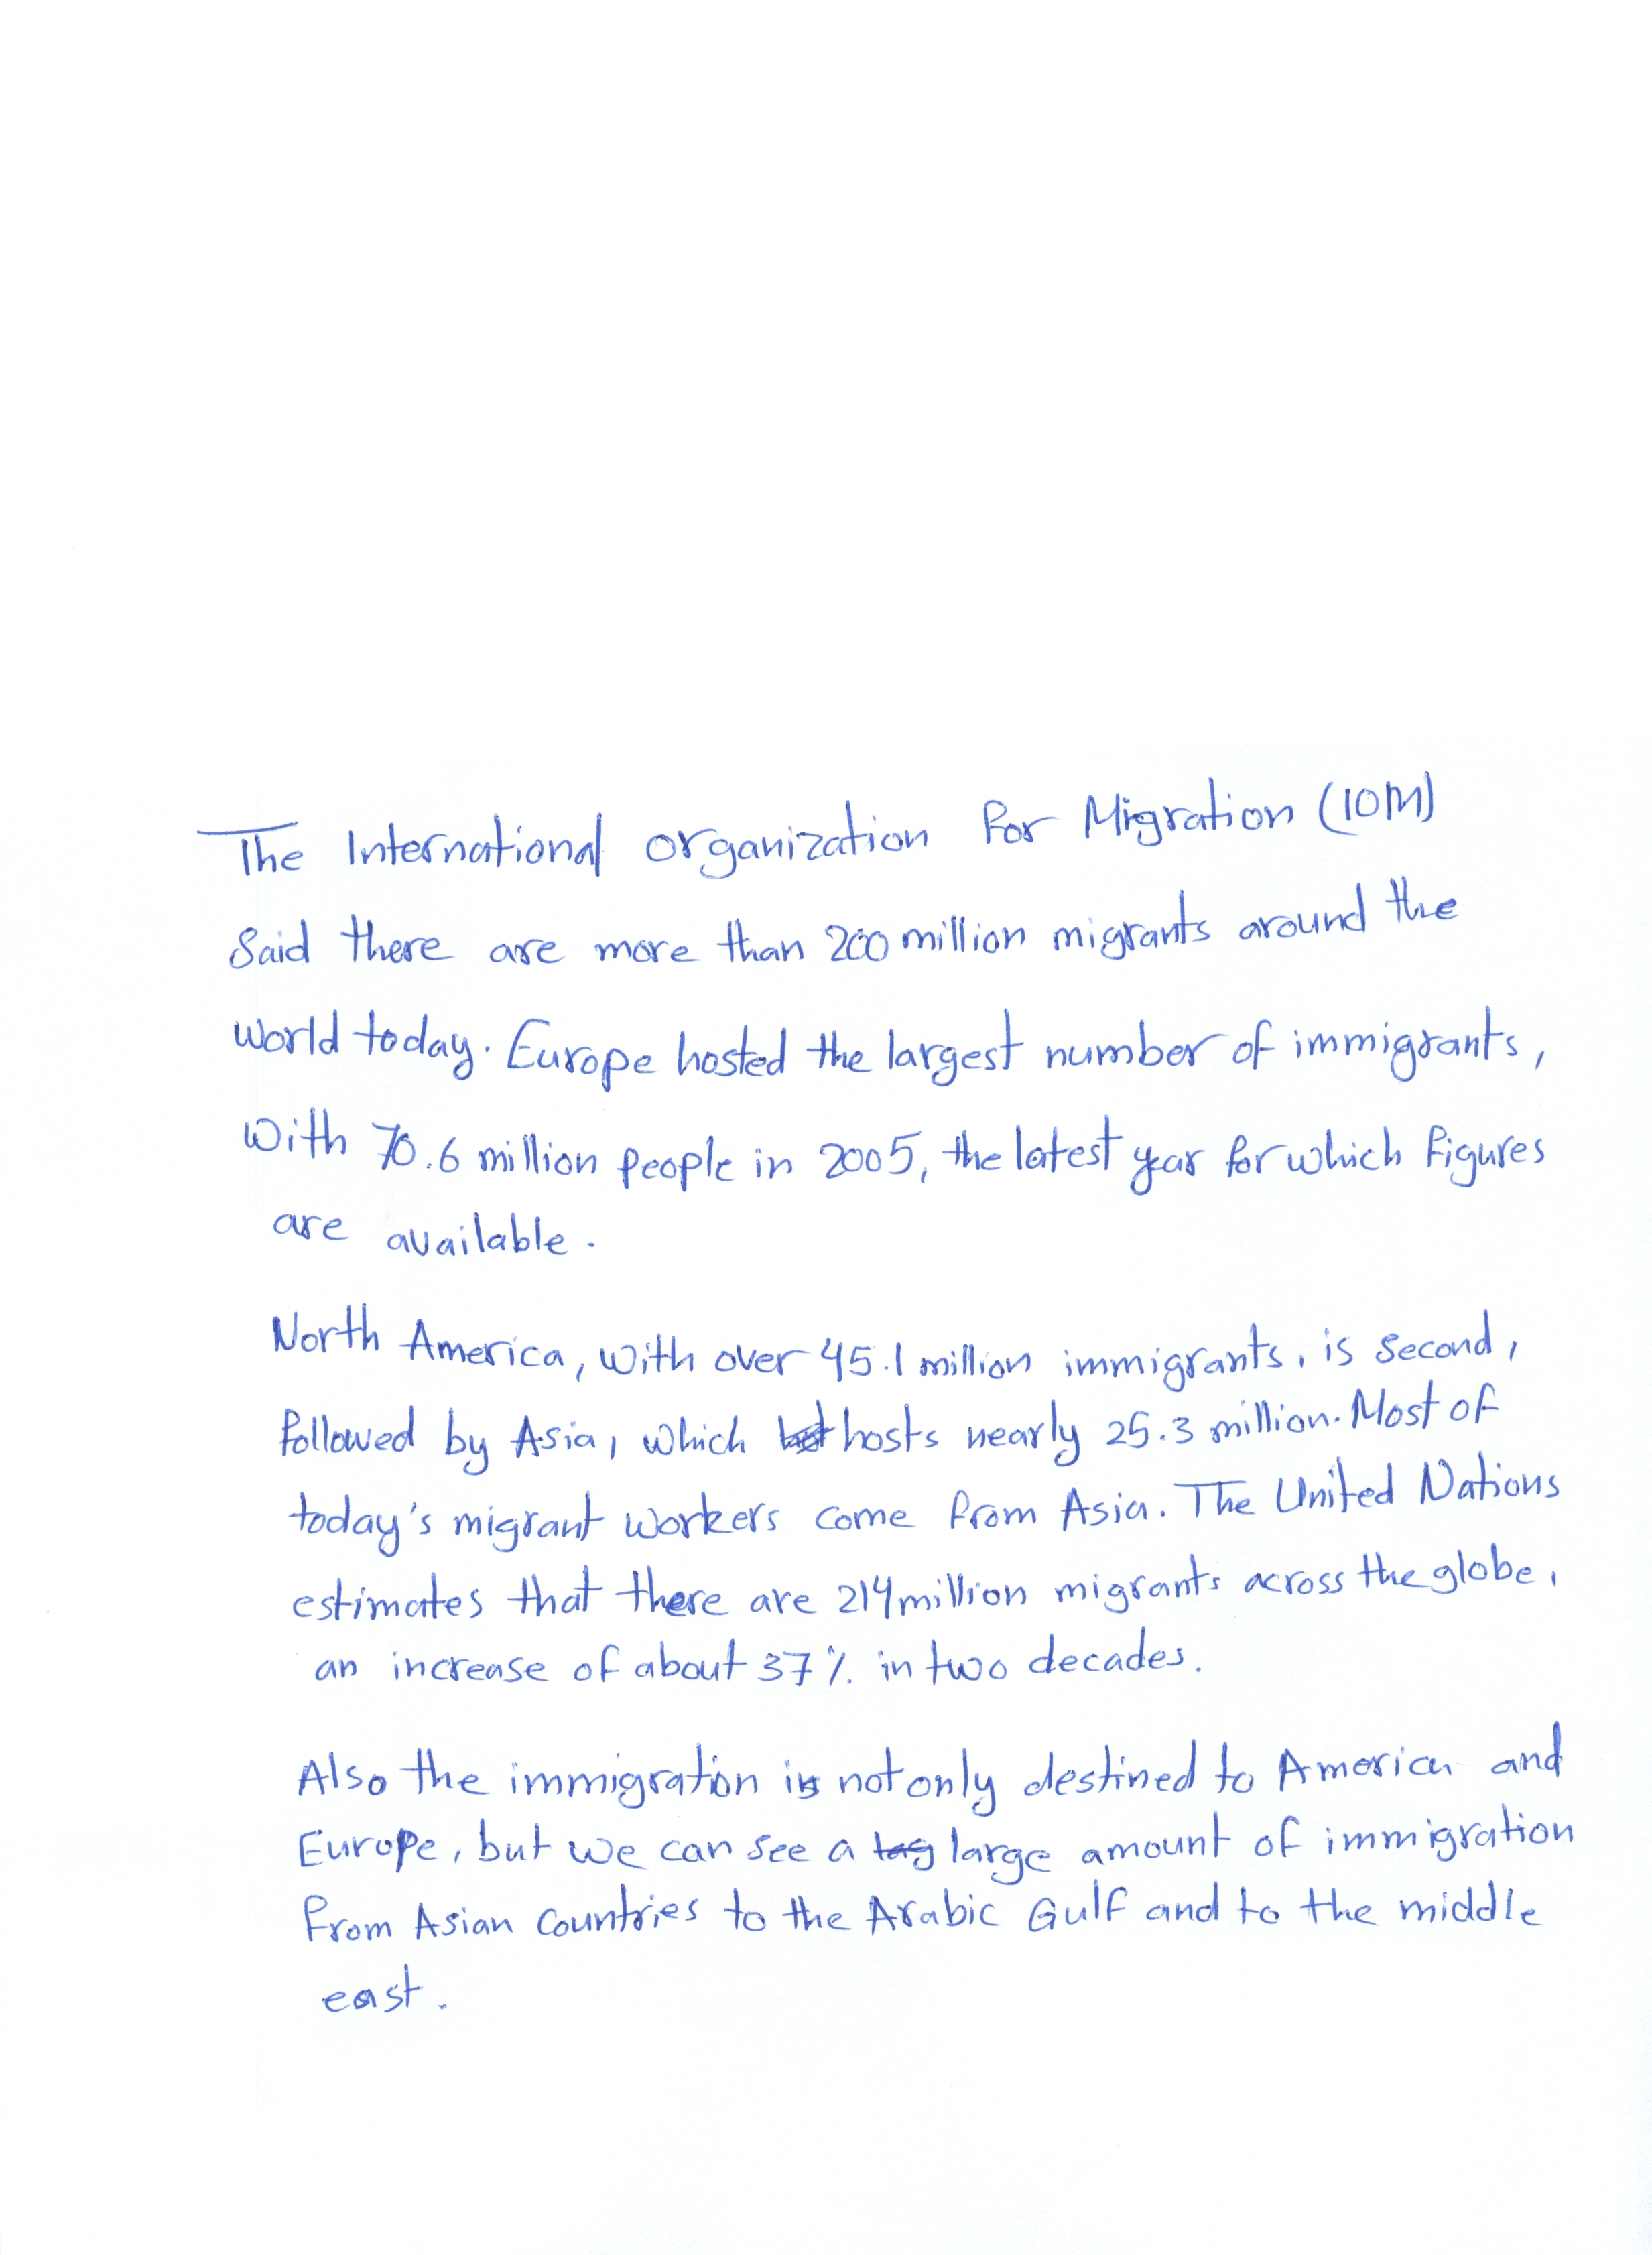 The International organization for Migration (IOM)
Said there are more than 200 million migrants around the
world today. Europe hosted the largest number of immigrants,
with 70.6 million people in 2005, the latest year for which figures
are available.
North America, with over 45.1 million immigrants, is second,
followed by Asia, which hosts nearly 25.3 million. Most of
today's migrant workers come from Asia. The United Nations
estimates that there are 214 million migrants across the globe,
an increase of about 37% in two decades.
Also the immigration is not only destined to America and
Europe, but we can see a large amount of immigration
from Asian countries to the Arabic Gulf and to the middle
east.